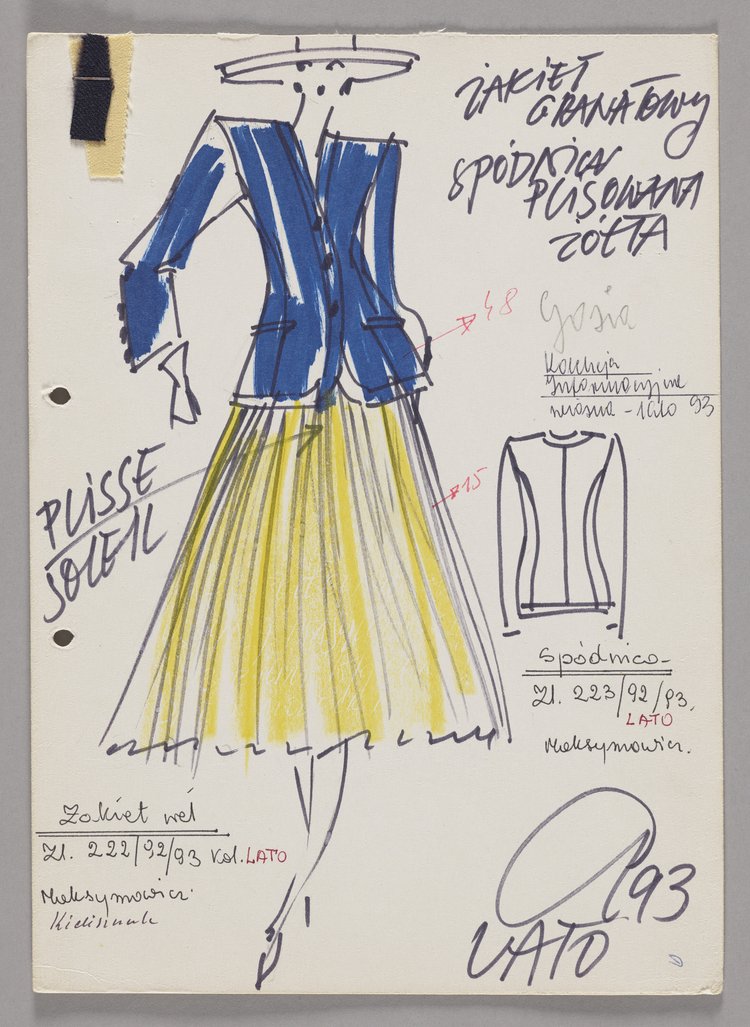 ŻAKIET
GRANATOWY
SPÓDNICA
PLISOWANA
ŻÓŁTA
48
Gosia
Kolekcja
Informacyjna
wiosna - lato 93
PLISSE
SOLEIL
15
Spódnica -
Zl. 223/92/93.
LATO
Maksymowicz.
Żakiet weł
Zl. 222/92/93 Kol. LATO
Maksymowicz.
93
LATO